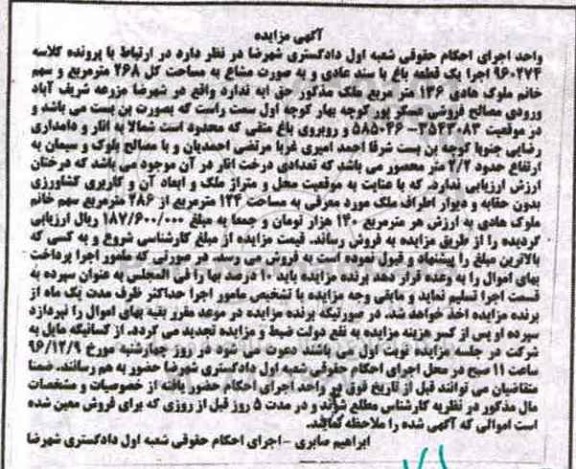 آگهی مزایده
واحد اجرای احکام حقوقی شعبه اول دادگستری شهرضا در نظر دارد در ارتباط با پرونده کلاسه
۹۶۰۲۷۴ اجرا یک قطعه باغ با سند عادی و به صورت مشاع به مساحت کل ۲۶۸ مترمربع و سهم
خانم ملوک هادی ۱۳۶ متر مربع ملک مذکور حق ابه ندارد واقع در شهرضا مزرعه شریف آباد
ورودی مصالح فروشی عسگر پور کوچه بهار کوچه اول سمت راست که بصورت بن بست می باشد و
در موقعیت ۳۵۴۳۰۸۳-۵۸۵۰۴۶ و روبروی باغ متقی که محدود است شمالا به آثار و دامداری
رضایی جنوبا کوچه بن بست شرقا احمد امیری غربا مرتضی احمدیان و با مصالح بلوک و سیمان به
ارتفاع حدود ۲/۲ متر محصور می باشد که تعدادی درخت انار در آن موجود می باشد که درختان
ارزش ارزیابی ندارد، که با عنایت به موقعیت محل و متراژ ملک و ابعاد آن و کاربری کشاورزی
بدون حقابه و دیوار اطراف ملک مورد معرفی به مساحت ۱۳۴ مترمربع از ۲۸۶ مترمربع سهم خانم
ملوک هادی به ارزش هر مترمربع ۱۴۰ هزار تومان و جمعا به مبلغ ۱۸۷/۶۰۰/۰۰۰ ریال ارزیابی
گردیده را از طریق مزایده به فروش رساند. قیمت مزایده از مبلغ کارشناسی شروع و به کسی که
بالاترین مبلغ را پیشنهاد و قبول نموده است به فروش می رسد. در صورتی که مامور اجرا پرداخت
بهای اموال را به وعده قرار دهد برنده مزایده باید ۱۰ درصد بها را فی المجلس به عنوان سپرده به
قسمت اجرا تسلیم نماید و مابقی وجه مزایده با تشخیص مامور اجرا حداکثر ظرف مدت یک ماه از
برنده مزایده اخذ خواهد شد. در صورتیکه برنده مزایده در موعد مقرر بقیه بهای اموال را نپردازد
سپرده او پس از کسر هزینه مزایده به نفع دولت ضبط و مزایده تجدید می گردد. از کسانیکه مایل به
شرکت در جلسه مزایده نوبت اول می باشند دعوت می شود در روز چهارشنبه مورخ ۹۶/۱۲/۹
ساعت ۱۱ صبح در محل اجرای احکام حقوقی شعبه اول دادگستری شهرضا حضور به هم رسانند. ضمنا
متقاضیان می توانند قبل از تاریخ فوق در واحد اجرای احکام حضور یافته از خصوصیات و مشخصات
مال مذکور در نظریه کارشناس مطلع شوند و در مدت ۵ روز قبل از روزی که برای فروش معین شده
است اموالی که آگهی شده را ملاحظه نمایند.
ابراهیم صابری -اجرای احکام حقوقی شعبه اول دادگستری شهرضا